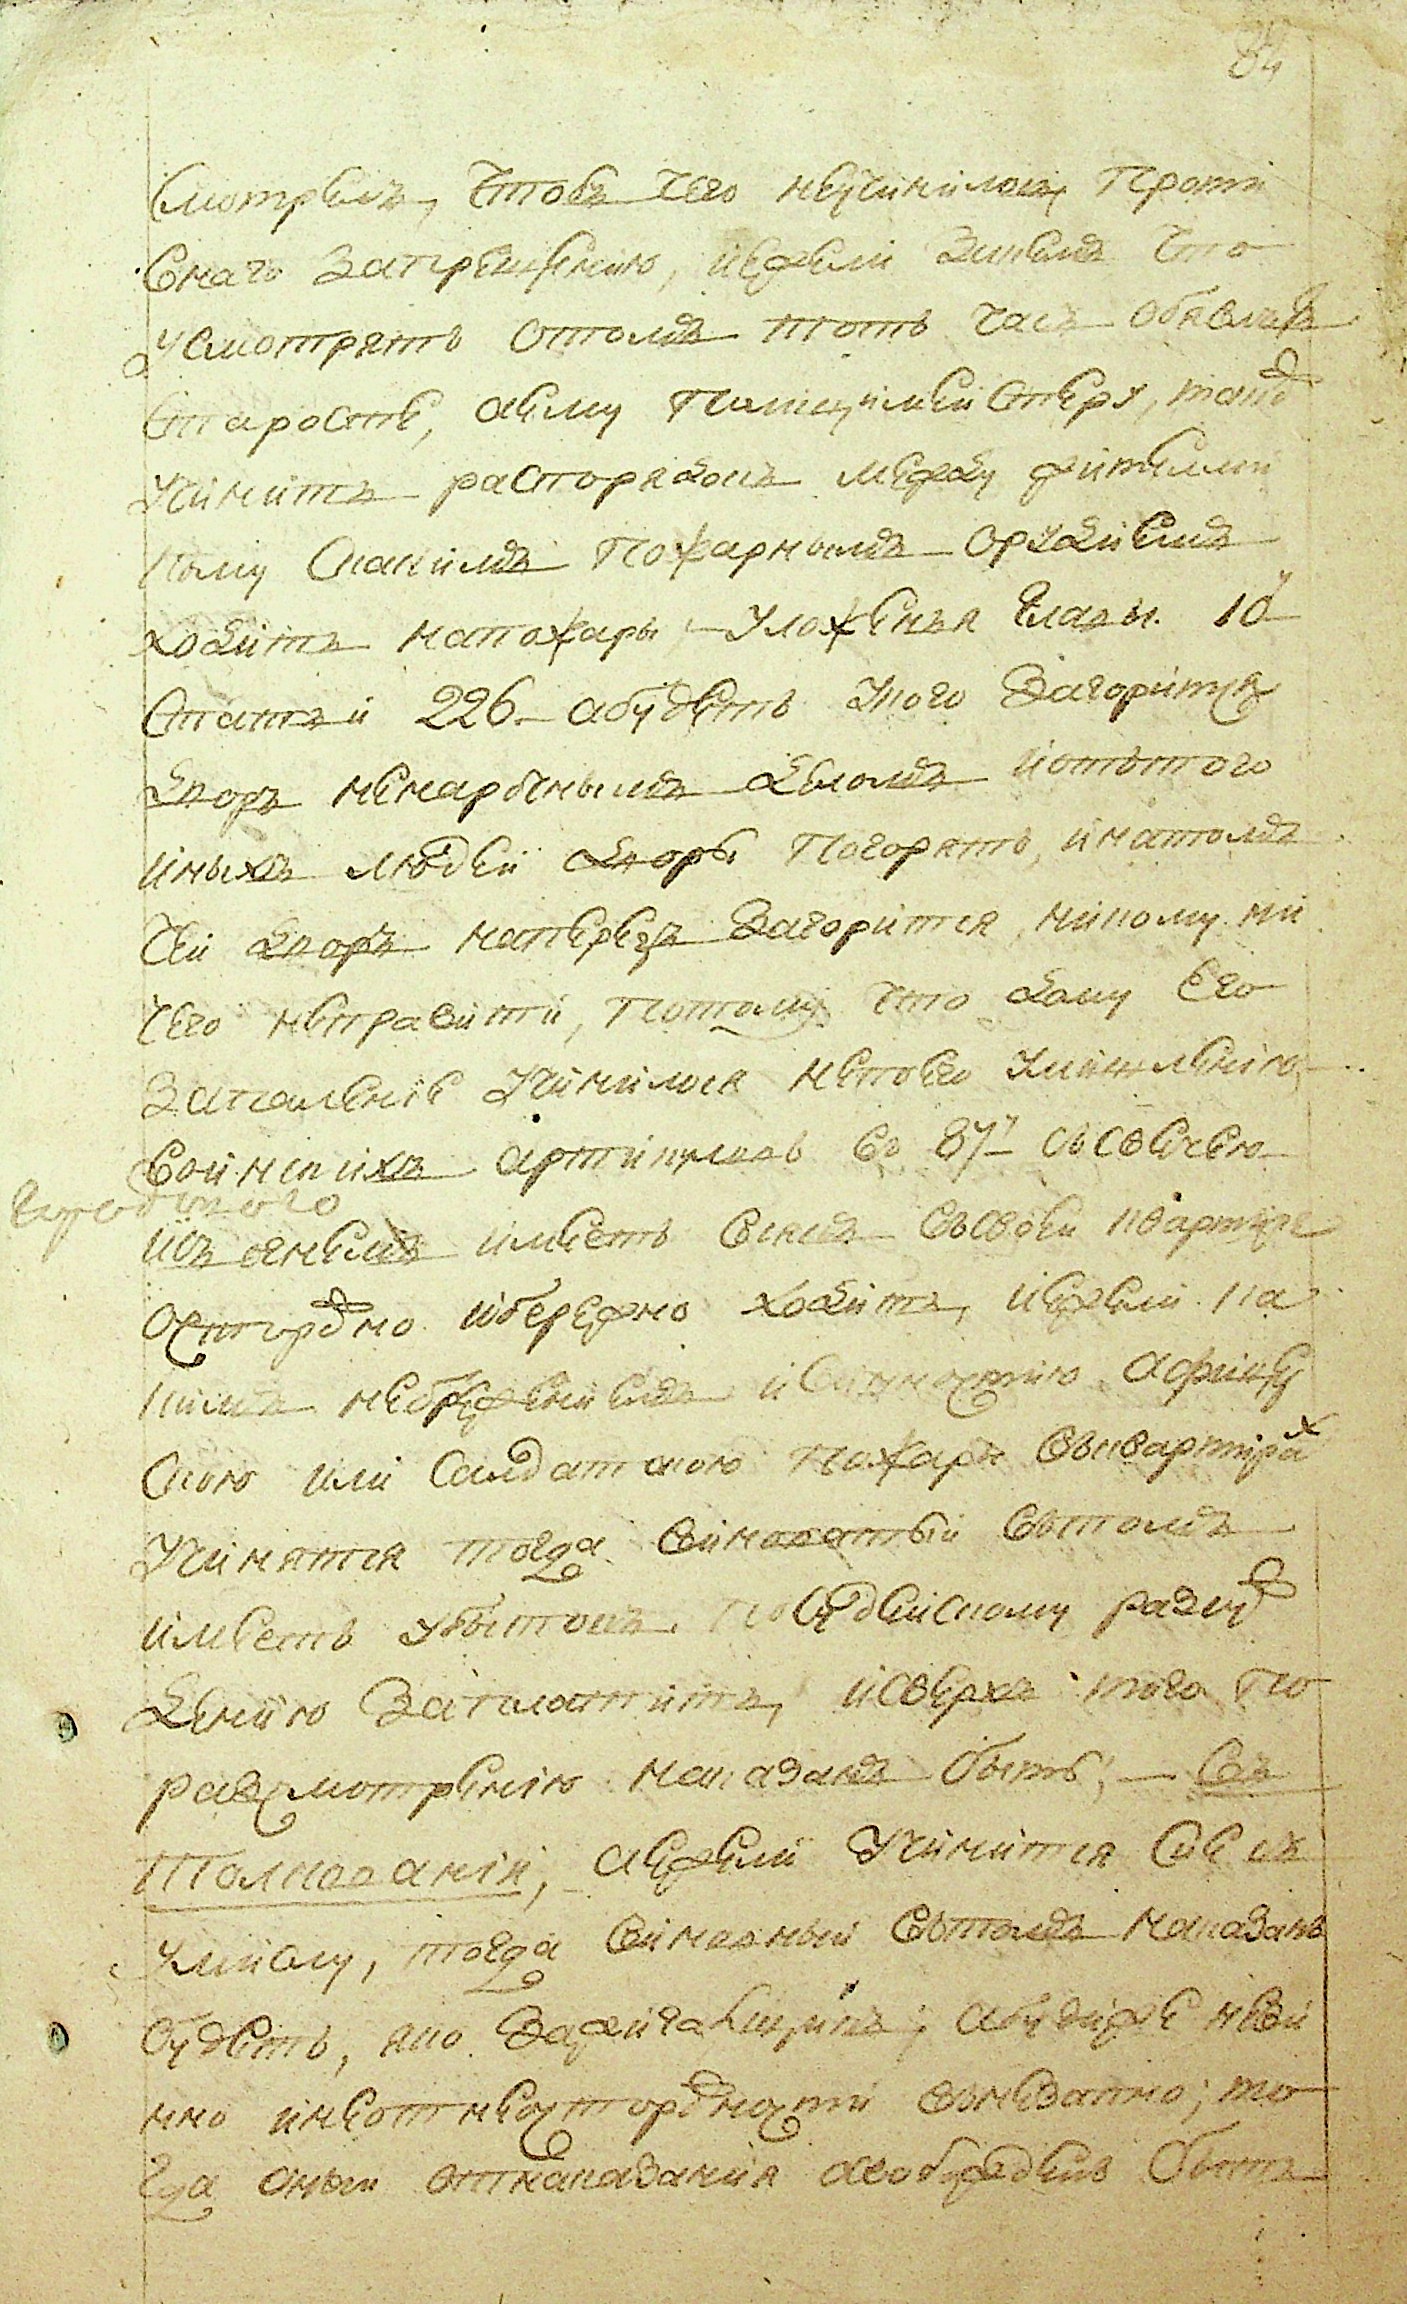 84
смотрель, чтобъ чего неучинилось проти
внаго запрещению, иежели зжемъ что
усмотрятъ отомъ тотъ часъ объявить
старосте, аему полицимейстеру, такъ
учинить распорядокъ между жительми
кому скакимъ пожарнымъ орудиемъ
ходить напожары — уложенья главы 10й
статьи 226 — абудетъ укого загоритца
дворъ ненарочнымъ деломъ иотътого
иныхъ людей дворы погорятъ, инатомъ
чей дворъ наперезъ загорится, никому ни
чего неправити, потому что дому его
запаление учинилося непоево умышлению
воинскихъ артикуловъ въ 87й съсвечею
городского
исъ огнемъ имеетъ всякъ въсвоей квартире
осторожно ибережно ходить, иежели ка
кимъ небрежениемъ ивинностию афицер
скою или салдатскою пожаръ въквартирах
учинятся тогда виноватый вътомъ
имеетъ убытокъ посудейскому разсуж
дению заплатить, исверхъ того по
разсмотрению наказанъ быть, — въ
толковании, аежели учинится сие съ
умыслу, тогда виновный вътомъ наказанъ
будетъ, яко зажигальщикъ; абудиже неви
нно инеотнеосторожности вънезапно; то
гда оный отнаказания свобожденъ быть